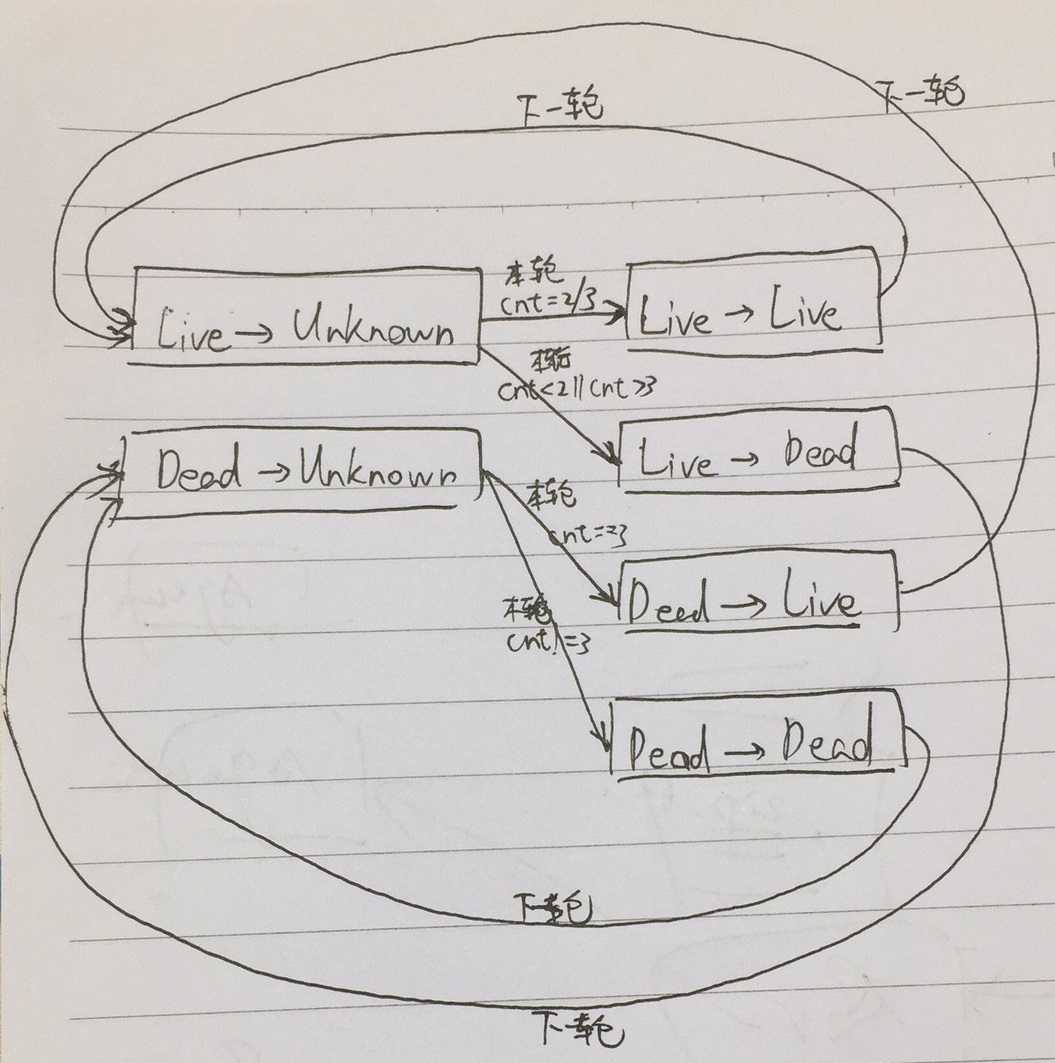 下一轮
下一轮
本轮
cnt=2/3
Live → Unknown
Live → Live
本轮
cnt<2||cnt>3
Live → Dead
Dead → Unknown
本轮
cnt==3
Dead → Live
本轮
cnt!=3
Dead → Dead
下一轮
下一轮